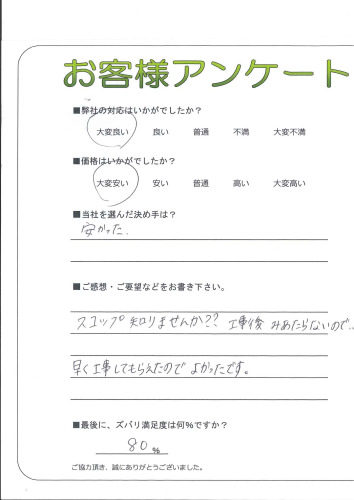 お客様アンケート
■弊社の対応はいかがでしたか？
大変良い 良い 普通 不満 大変不満
■価格はいかがでしたか？
大変安い 安い 普通 高い 大変高い
■当社を選んだ決め手は？
安かった．
■ご感想・ご要望などをお書き下さい。
スコップ知りませんか?? 工事後 みあたらないので…
早く工事してもらえたので よかったです。
■最後に、ズバリ満足度は何％ですか？
80 %
ご協力頂き、誠にありがとうございました。